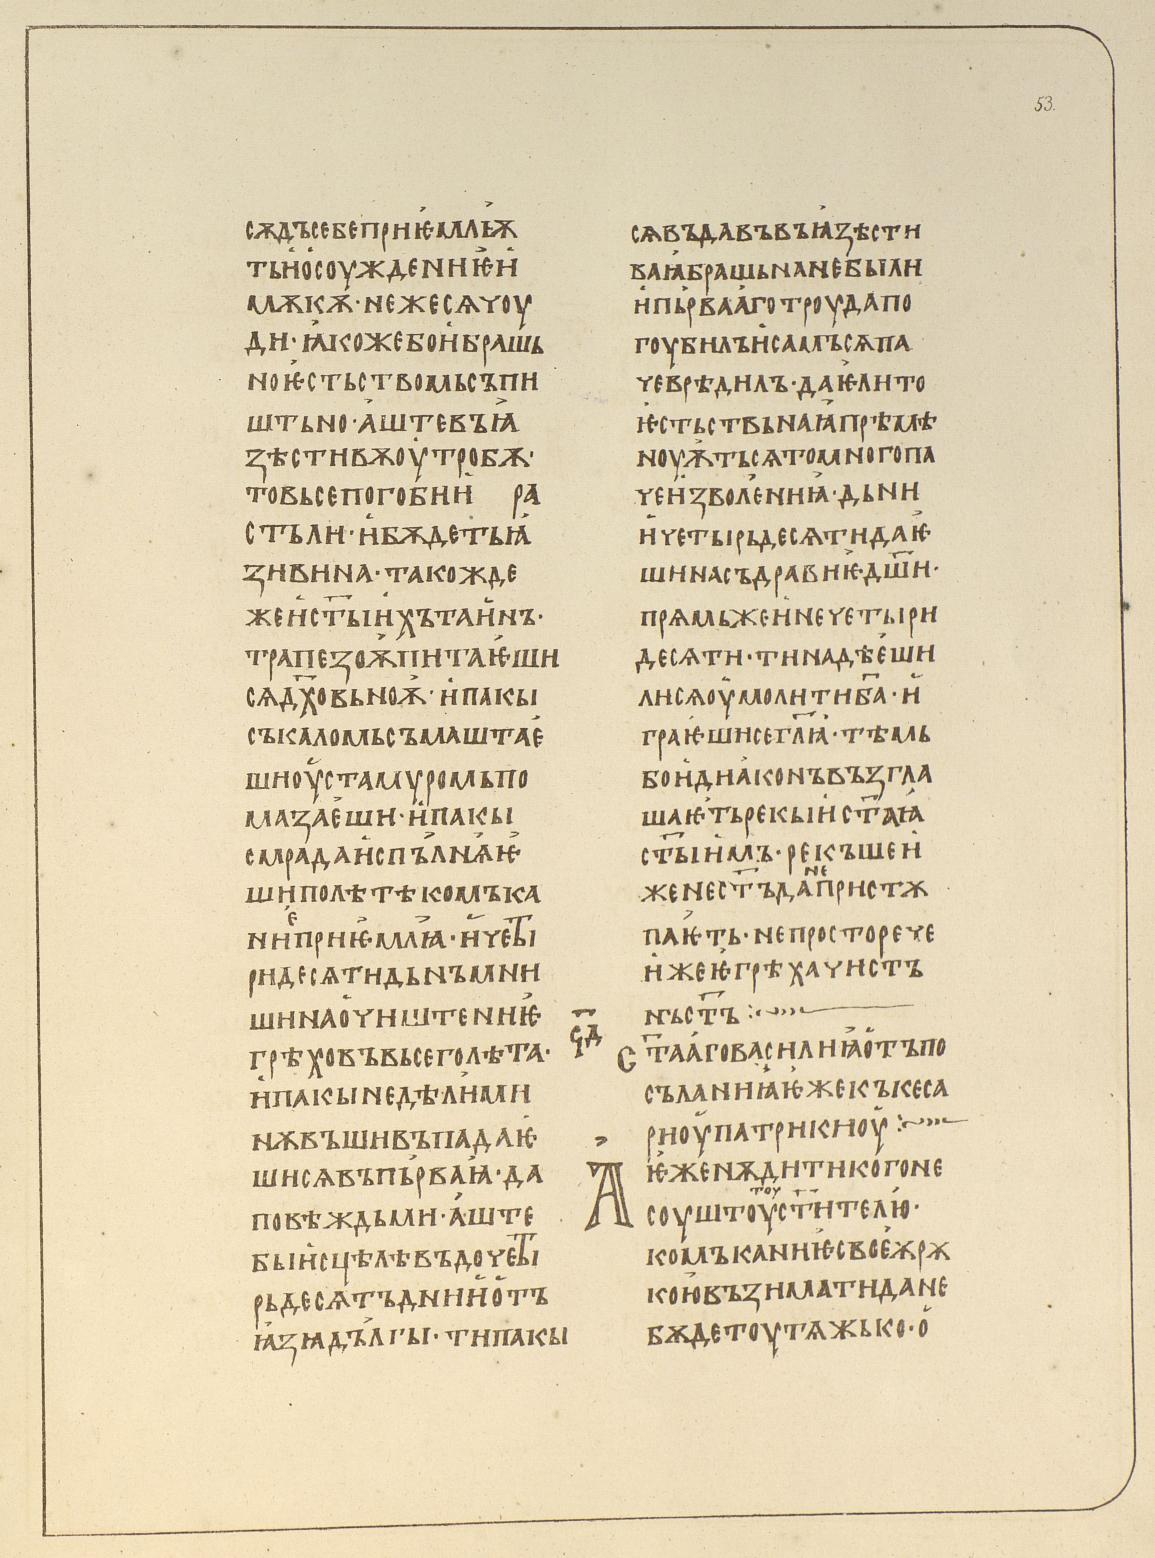 53.
сѫдъсебеприѥмлѭ
тьиосоуждениѥи
мѫкѫ · нежесѧчоу
ди · ꙗкожебоибрашь
ноѥстьствомьсъпи
штьно · аштевъꙗ
зѣстивѫоутробѫ ·
товьсепогобии ра
стъли · ибѫдетьꙗ
зивина · такожде
жеис҃тыихътаинъ ·
трапезоѭпитаѥши
сѧд҃ховьноѭ · ипакы
съкаломьсъмаштае
шиоустамуромьпо
мазаеши · ипакы
смрадаиспълнѧѥ
шиполѣтѣкомъка
ниеприѥмлꙗ · ичеты
ридесѧтидьнъмни
шинаоучиштениѥ
грѣховъвьсеголѣта ·
ипакынедѣлими
нѫвъшивъпадаѥ
шисѧвъпьрваꙗ · да
повѣждьми · аште
быисцѣлѣвъдочеты
рьдесѧтъднииотъ
ꙗзѧдългы · типакы
сѧвъдавъвъꙗзѣсти
ваꙗбрашьнанебыли
ипьрвааготроудапо
гоубилъисамъсѧпа
чеврѣдилъ · даѥлито
ѥстьствьнаꙗпрѣмѣ
ноуѭтьсѧтомногопа
чеизволениꙗ · дьни
ичетырьдесѧтидаѥ
шинасъдравиѥд҃ши ·
прѧмьжеинечетыри
десѧти · тинадѣеши
лисѧоумолитиб҃а · и
граѥшисег҃лꙗ · тѣмь
боидиаконъвъзгла
шаѥтьрекыис҃таꙗ
с҃тыимъ · рекъшеи
женес҃тъданепристѫ
паѥть · непросторече
ижеѥгрѣхачистъ
ньс҃тъ :~
с҃д
с҃тааговасилиꙗотъпо
съланиꙗѥжекъкеса
риоупатрикиоу :~
Аѥженѫдитикогоне
соуштоутоус҃тителю ·
комъканиѥсвоеѫрѫ
коювъзиматидане
бѫдетоутѧжько · о